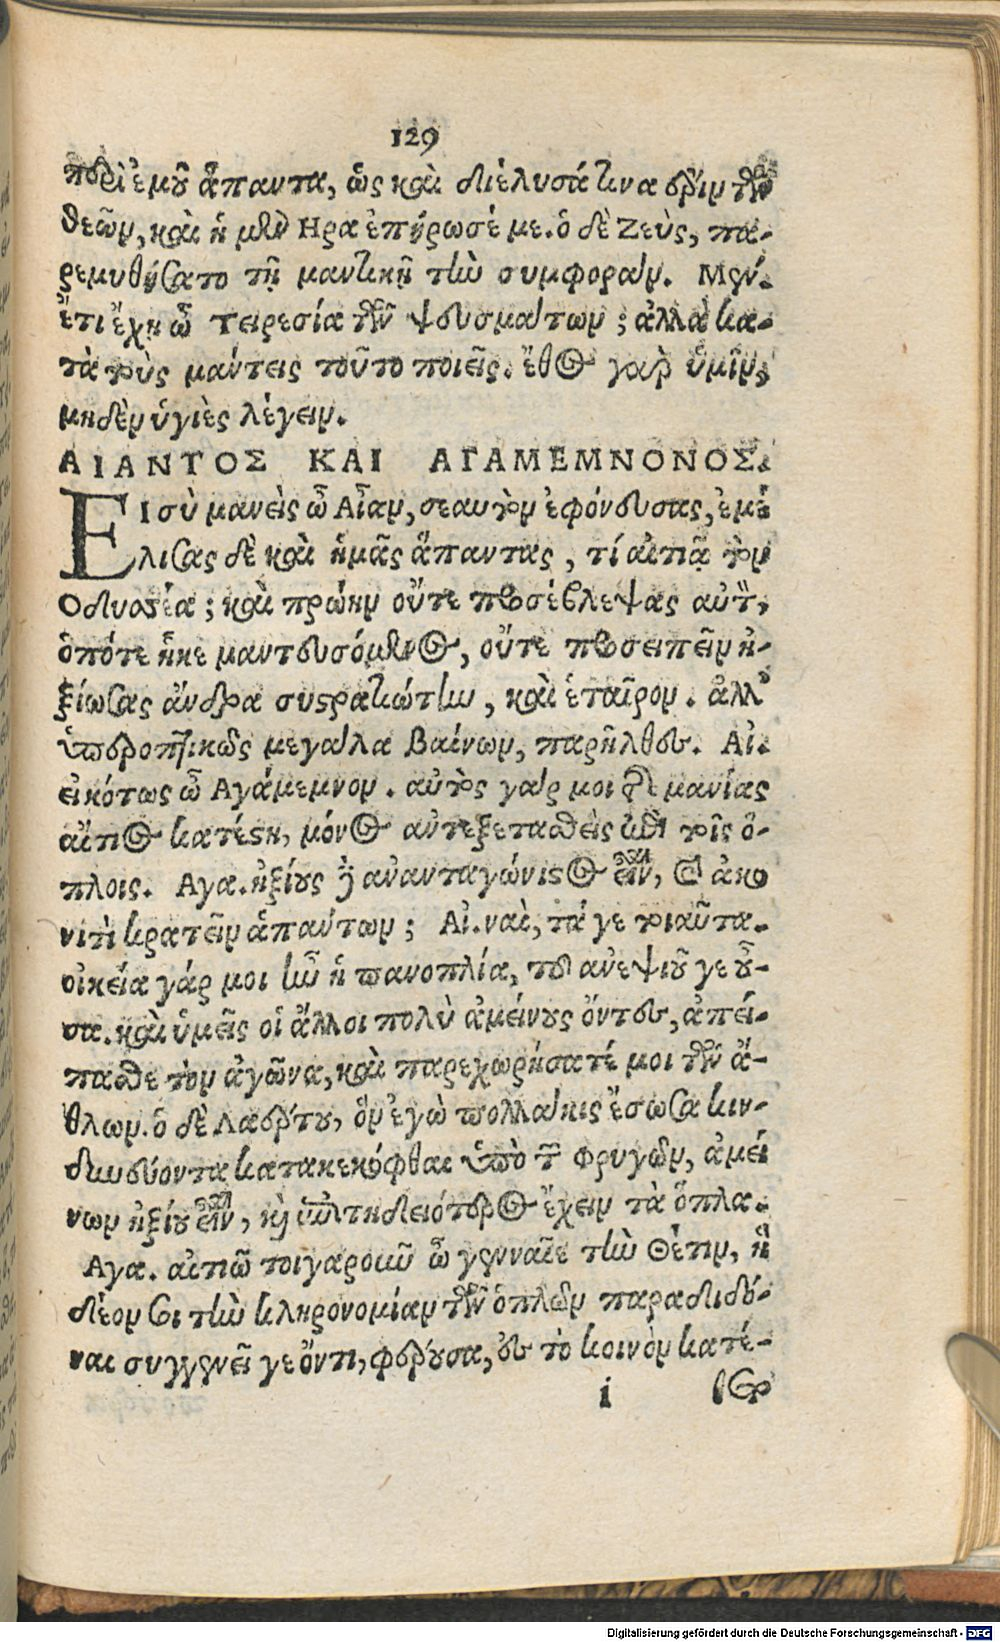 129
περὶ ἐμοῦ ἅπαντα, ὡς καὶ διέλυσά τινα ἔριν τῶν
θεῶν, καὶ ἡ μὲν Ηρα ἐπήρωσέ με. ὁ δὲ Ζεὺς, πα-
ρεμυθήσατο τῇ μαντικῇ τὴν συμφοράν. Μεν.
ἔτι ἔχῃ ὦ τειρεσία τῶν ψευσμάτων; ἀλλὰ κα-
τὰ τοὺς μάντεις τοῦτο ποιεῖς. ἔθος γὰρ ὑμῖν,
μηδὲν ὑγιὲς λέγειν.
ΑΙΑΝΤΟΣ ΚΑΙ ΑΓΑΜΕΜΝΟΝΟΣ.
ΕΙ σὺ μανεὶς ὦ Αἶαν, σεαυτὸν ἐφόνευσας, ἐμέ
λισας δὲ καὶ ἡμᾶς ἅπαντας, τί αἰτιᾷ τὸν
Οδυσέα; καὶ πρώην οὔτε προσέβλεψας αὐτὸν,
ὁπότε ἧκε μαντευσόμενος, οὔτε προσειπεῖν ἠ-
ξίωσας ἄνδρα συστρατιώτην, καὶ ἑταῖρον. ἀλλ'
ὑπεροπτικῶς μεγάλα βαίνων, παρῆλθες. Αἰ.
εἰκότως ὦ Αγάμεμνον. αὐτὸς γάρ μοι τῆς μανίας
αἴτιος κατέστη, μόνος ἀντεξετασθεὶς ἐπὶ τοῖς ὅ-
πλοις. Αγα. ἠξίους δὲ ἀνανταγώνιστος εἶναι, καὶ ἀκο
νιτὶ κρατεῖν ἁπάντων; Αἰ. ναὶ, τά γε τοιαῦτα.
οἰκεία γάρ μοι ἦν ἡ πανοπλία, τοῦ ἀνεψιοῦ γε οὖ-
σα. καὶ ὑμεῖς οἱ ἄλλοι πολὺ ἀμείνους ὄντες, ἀπεί-
πασθε τὸν ἀγῶνα, καὶ παρεχωρήσατέ μοι τῶν ἄ-
θλων. ὁ δὲ Λαέρτου, ὃν ἐγὼ πολλάκις ἔσωσα κιν-
δυνεύοντα κατακεκόφθαι ὑπὸ τῶν φρυγῶν, ἀμεί
νων ἠξίου εἶναι, καὶ ἐπιτηδειότερος ἔχειν τὰ ὅπλα.
Αγα. αἰτιῶ τοιγαροῦν ὦ γενναῖε τὴν Θέτιν, ἣ
δέον σοι τὴν κληρονομίαν τῶν ὅπλων παραδιδό-
ναι συγγενεῖ γε ὄντι, φέρουσα, ἐς τὸ κοινὸν κατέ-
i
Digitalisierung gefördert durch die Deutsche Forschungsgemeinschaft - DFG